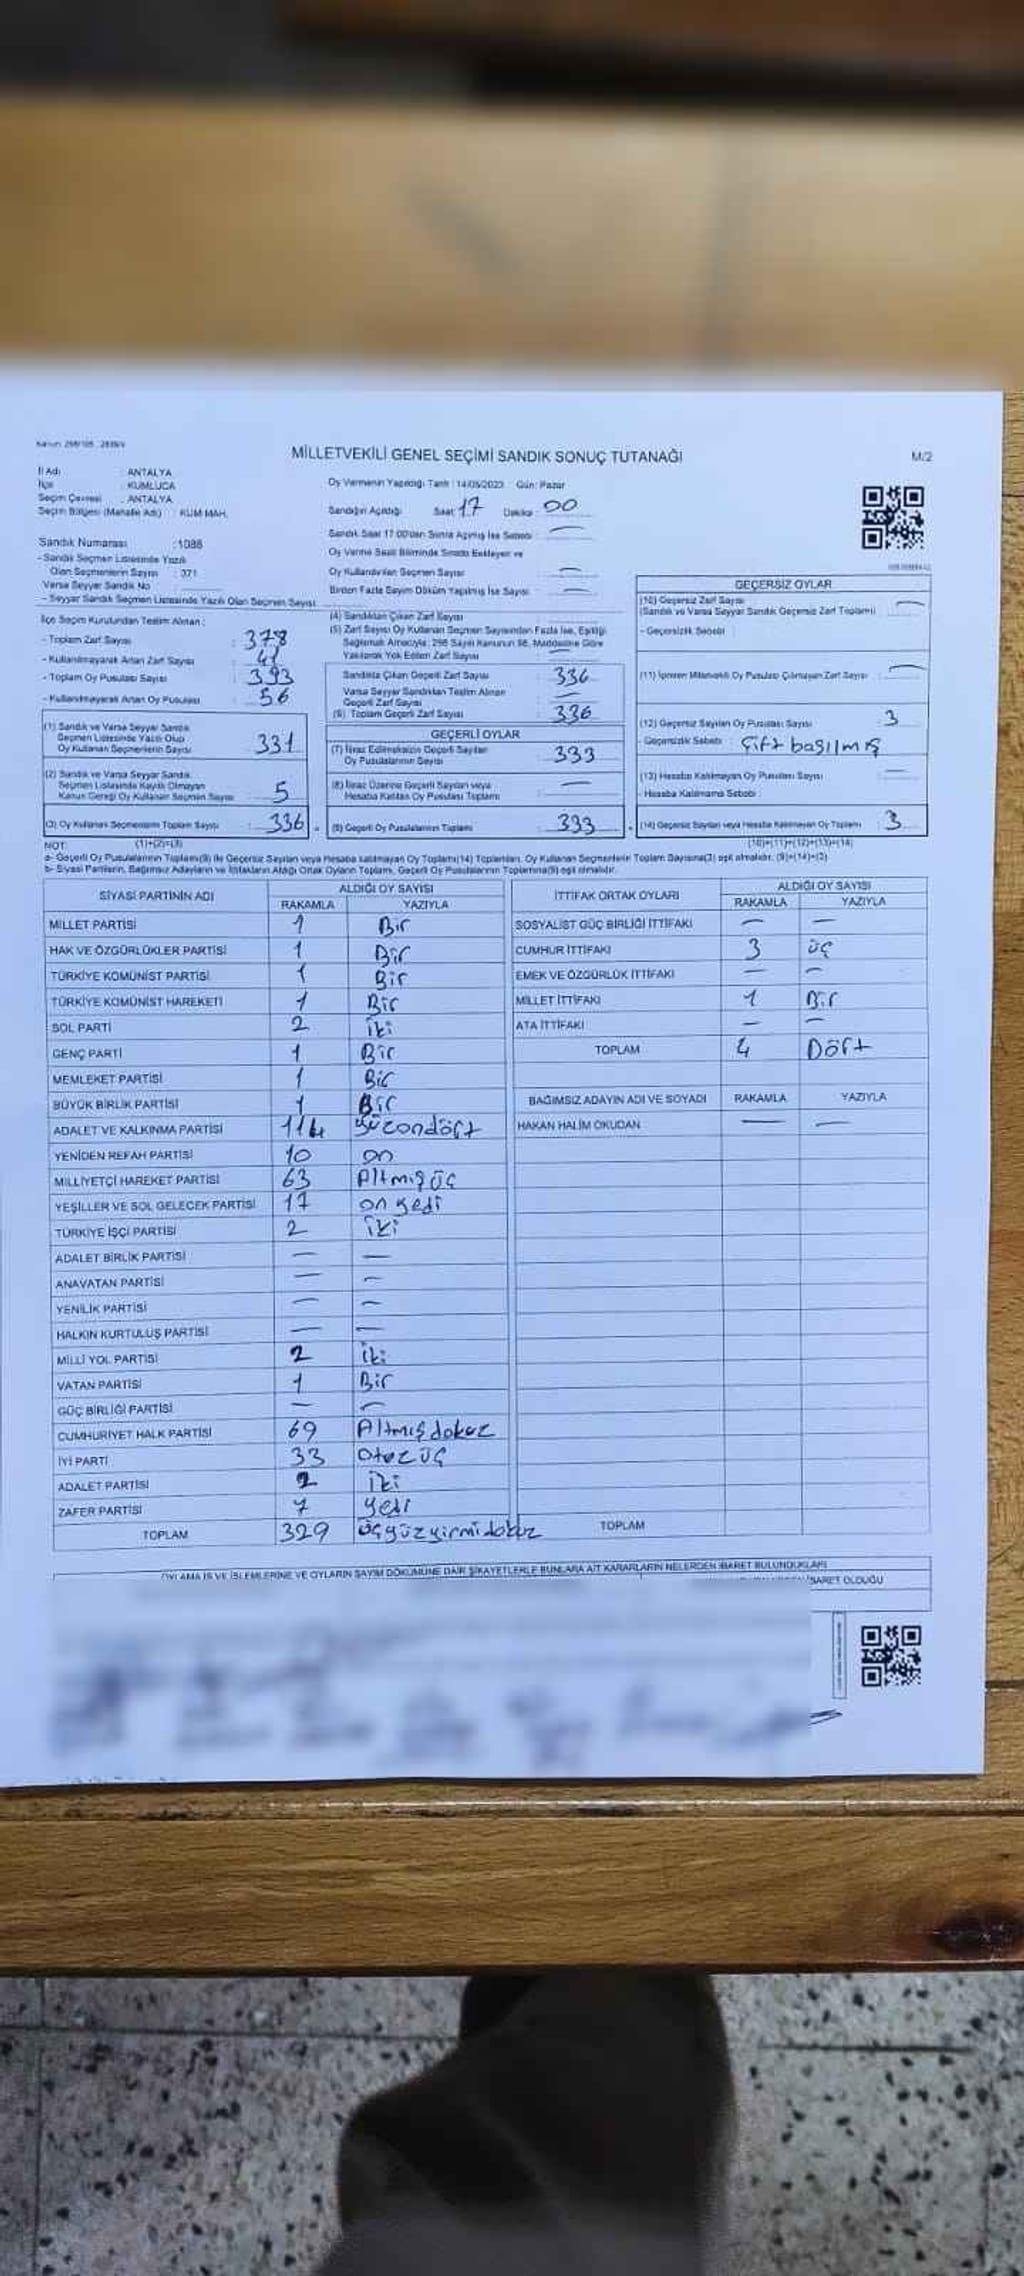 MİLLETVEKİLİ GENEL SEÇİMİ SANDIK SONUÇ TUTANAĞI
M/2
İl Adı : ANTALYA
İlçe : KUMLUCA
Seçim Çevresi : ANTALYA
Seçim Bölgesi (Mahalle Adı) : KUM MAH.
Oy Vermenin Yapıldığı Tarih : 14/05/2023 Gün: Pazar
Sandığın Açıldığı Saat 17 Dakika 00
Sandık Saat 17:00'dan Sonra Açılmış İse Sebebi : —
Oy Verme Saati Bitiminde Sırada Bekleyen ve
Oy Kullandırılan Seçmen Sayısı : —
Birden Fazla Sayım Döküm Yapılmış İse Sayısı : —
Sandık Numarası : 1088
- Sandık Seçmen Listesinde Yazılı
Olan Seçmenlerin Sayısı : 371
Varsa Seyyar Sandık No
- Seyyar Sandık Seçmen Listesinde Yazılı Olan Seçmen Sayısı:
İlçe Seçim Kurulundan Teslim Alınan :
- Toplam Zarf Sayısı : 378
- Kullanılmayarak Artan Zarf Sayısı : 41
- Toplam Oy Pusulası Sayısı : 393
- Kullanılmayarak Artan Oy Pusulası : 56
(1) Sandık ve Varsa Seyyar Sandık
Seçmen Listesinde Yazılı Olup
Oy Kullanan Seçmenlerin Sayısı : 331
(2) Sandık ve Varsa Seyyar Sandık
Seçmen Listesinde Kayıtlı Olmayan
Kanun Gereği Oy Kullanan Seçmen Sayısı : 5
(3) Oy Kullanan Seçmenlerin Toplam Sayısı : 336
(1)+(2)=(3)
(4) Sandıktan Çıkan Zarf Sayısı :
(5) Zarf Sayısı Oy Kullanan Seçmen Sayısından Fazla İse, Eşitliği
Sağlamak Amacıyla; 298 Sayılı Kanunun 98. Maddesine Göre
Yakılarak Yok Edilen Zarf Sayısı : —
Sandıkta Çıkan Geçerli Zarf Sayısı : 336
Varsa Seyyar Sandıktan Teslim Alınan
Geçerli Zarf Sayısı : —
(6) Toplam Geçerli Zarf Sayısı : 336
GEÇERLİ OYLAR
(7) İtiraz Edilmeksizin Geçerli Sayılan
Oy Pusulalarının Sayısı : 333
(8) İtiraz Üzerine Geçerli Sayılan veya
Hesaba Katılan Oy Pusulası Toplamı : —
(9) Geçerli Oy Pusulalarının Toplamı : 333
GEÇERSİZ OYLAR
(10) Geçersiz Zarf Sayısı
(Sandık ve Varsa Seyyar Sandık Geçersiz Zarf Toplamı) : —
- Geçersizlik Sebebi :
(11) İçinden Milletvekili Oy Pusulası Çıkmayan Zarf Sayısı : —
(12) Geçersiz Sayılan Oy Pusulası Sayısı : 3
- Geçersizlik Sebebi : Çift basılmış
(13) Hesaba Katılmayan Oy Pusulası Sayısı : —
- Hesaba Katılmama Sebebi :
(14) Geçersiz Sayılan veya Hesaba Katılmayan Oy Toplamı : 3
(10)+(11)+(12)+(13)=(14)
NOT:
a- Geçerli Oy Pusulalarının Toplamı(9) ile Geçersiz Sayılan veya Hesaba katılmayan Oy Toplamı(14) Toplamları, Oy Kullanan Seçmenlerin Toplam Sayısına(3) eşit olmalıdır. (9)+(14)=(3)
b- Siyasi Partilerin, Bağımsız Adayların ve İttifakların Aldığı Ortak Oyların Toplamı, Geçerli Oy Pusulalarının Toplamına(9) eşit olmalıdır.
SİYASİ PARTİNİN ADI ALDIĞI OY SAYISI
RAKAMLA YAZIYLA
MİLLET PARTİSİ 1 Bir
HAK VE ÖZGÜRLÜKLER PARTİSİ 1 Bir
TÜRKİYE KOMÜNİST PARTİSİ 1 Bir
TÜRKİYE KOMÜNİST HAREKETİ 1 Bir
SOL PARTİ 2 iki
GENÇ PARTİ 1 Bir
MEMLEKET PARTİSİ 1 Bir
BÜYÜK BİRLİK PARTİSİ 1 Bir
ADALET VE KALKINMA PARTİSİ 114 yüzondört
YENİDEN REFAH PARTİSİ 10 on
MİLLİYETÇİ HAREKET PARTİSİ 63 Altmışüç
YEŞİLLER VE SOL GELECEK PARTİSİ 17 on yedi
TÜRKİYE İŞÇİ PARTİSİ 2 iki
ADALET BİRLİK PARTİSİ — —
ANAVATAN PARTİSİ — —
YENİLİK PARTİSİ — —
HALKIN KURTULUŞ PARTİSİ — —
MİLLİ YOL PARTİSİ 2 iki
VATAN PARTİSİ 1 Bir
GÜÇ BİRLİĞİ PARTİSİ — —
CUMHURİYET HALK PARTİSİ 69 Altmışdokuz
İYİ PARTİ 33 otuzüç
ADALET PARTİSİ 2 iki
ZAFER PARTİSİ 7 yedi
TOPLAM 329 üçyüzyirmidokuz
İTTİFAK ORTAK OYLARI ALDIĞI OY SAYISI
RAKAMLA YAZIYLA
SOSYALİST GÜÇ BİRLİĞİ İTTİFAKI — —
CUMHUR İTTİFAKI 3 üç
EMEK VE ÖZGÜRLÜK İTTİFAKI — —
MİLLET İTTİFAKI 1 Bir
ATA İTTİFAKI — —
TOPLAM 4 Dört
BAĞIMSIZ ADAYIN ADI VE SOYADI RAKAMLA YAZIYLA
HAKAN HALİM OKUDAN — —
TOPLAM
OYLAMA İŞ VE İŞLEMLERİNE VE OYLARIN SAYIM DÖKÜMÜNE DAİR ŞİKAYETLERLE BUNLARA AİT KARARLARIN NELERDEN İBARET BULUNDUKLARI
İBARET OLDUĞU